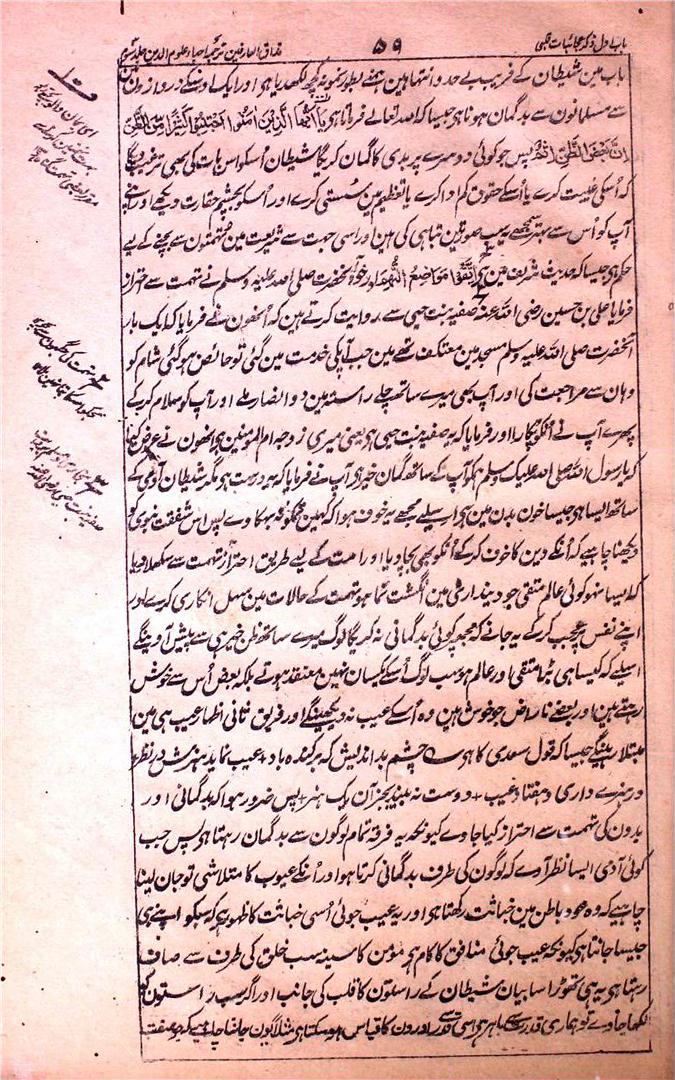 باب اول ذکر عجائبات قلبی ۵۹ مذاق العارفین ترجمہ احیاء علوم الدین جلد سوم
باب مین شیطان کے فریب بے حد و انتہا ہین ہمنے بطور نمونہ کچھ لکھدیا ہو اور ایک اوسکے دروازون
سے مسلمانون سے بدگمان ہونا ہو جیسا کہ اللہ تعالے فرماتا ہو یا ایها الذین امنوا اجتنبوا کثیرا من الظن
ان بعض الظن اثم پس جو کوئی دوسرے پر بدی کا گمان کریگا شیطان اُسکو اس بات کی بھی ترغیب دیگا
کہ اُسکی غیبت کرے یا اُسکے حقوق کم ادا کرے یا تعظیم مین سستی کرے اور اُسکو بچشم حقارت دیکھے اور اپنے
آپ کو اُس سے بہتر سمجھے یہ سب صورتین تباہی کی ہین اور اسی جہت سے شریعت مین تہمتون سے بچنے کے لیے
حکم ہو جیسا کہ حدیث شریف مین ہو اتقوا مواضع التهم اور خود آنحضرت صلی اللہ علیہ وسلم نے تہمت سے احتراز
فرمایا علی بن حسین رضی اللہ عنہ صفیہ بنت حیی سے روایت کرتے ہین کہ اُنھون نے فرمایا کہ ایک بار
آنحضرت صلی اللہ علیہ وسلم مسجد مین معتکف تھے مین جب آپکی خدمت مین گئی تو حائض ہو گئی شام کو
وہان سے مراجعت کی اور آپ بھی میرے ساتھ چلے راستہ مین دو انصار ملے اور آپ کو سلام کر کے
پھرے آپ نے اُنکو پکارا اور فرمایا کہ یہ صفیہ بنت حیی ہو یعنی میری زوجہ ام المومنین ہو اُنھون نے عرض کیا
کہ یا رسول اللہ صلی اللہ علیک وسلم ہمکو آپ کے ساتھ گمان خیر ہو آپ نے فرمایا کہ یہ درست ہو مگر شیطان آدمی کے
ساتھ ایسا ہو جیسا خون بدن مین ہو اسلیے مجھے یہ خوف ہوا کہ مین تمکو نہ بہکا وے پس اس شفقت نبوی کو
دیکھنا چاہیے کہ اُنکے دین کا خوف کر کے اُنکو بھی بچا دیا اور امت کے لیے طریق احتراز تہمت سے سکھلا دیا
کہ ایسا نہو کوئی عالم متقی جو دینداری مین انگشت نما ہو تہمت کے حالات مین سہل انکاری کرے اور
اپنے نفس پر عجب کر کے یہ جانے کہ مجھپر کوئی بدگمانی نہ کریگا لوگ میرے ساتھ ظن خیر ہی سے پیش آوینگے
اسلیے کہ کیسا ہی بڑا متقی اور عالم ہو سب لوگ اُسکے یکسان نہین معتقد ہوتے بلکہ بعض اُس سے خوش
رہتے ہین اور بعضے ناراض جو خوش ہین وہ اُسکے عیب نہ دیکھینگے اور فریق ثانی اظہار عیب ہی مین
مبتلا رہینگے جیسا کہ قول سعدی کا ہو ؎ چشم بد اندیش کہ برکندہ باد + عیب نماید ہنرش در نظر
ور ہنرے داری و ہفتاد عیب + دوست نہ بیند بجز آن یک ہنر + پس ضرور ہوا کہ بدگمانی اور
بدون کی تہمت سے احتراز کیا جاوے کیونکہ یہ فرقہ تمام لوگون سے بدگمان رہتا ہو پس جب
کوئی آدمی ایسا نظر آوے کہ لوگون کی طرف بدگمانی کرتا ہو اور اُنکے عیوب کا متلاشی تو جان لینا
چاہیے کہ وہ خود باطن مین خباثت رکھتا ہو اور یہ عیب جوئی اُسی خباثت کا ظہور ہو کہ سبکو اپنے ہی
جیسا جانتا ہو کیونکہ عیب جوئی منافق کا کام ہو مؤمن کا سینہ سب خلق کی طرف سے صاف
رہتا ہو یہ ہی تھوڑا سا بیان شیطان کے راستون کا قلب کی جانب اور اگر سب راستون کو
لکھا جاوے تو ہماری قدرت سے باہر ہو اسی قدر سے اورون کا قیاس ہو سکتا ہو مثلاً یون جاننا چاہیے کہ جو صفت